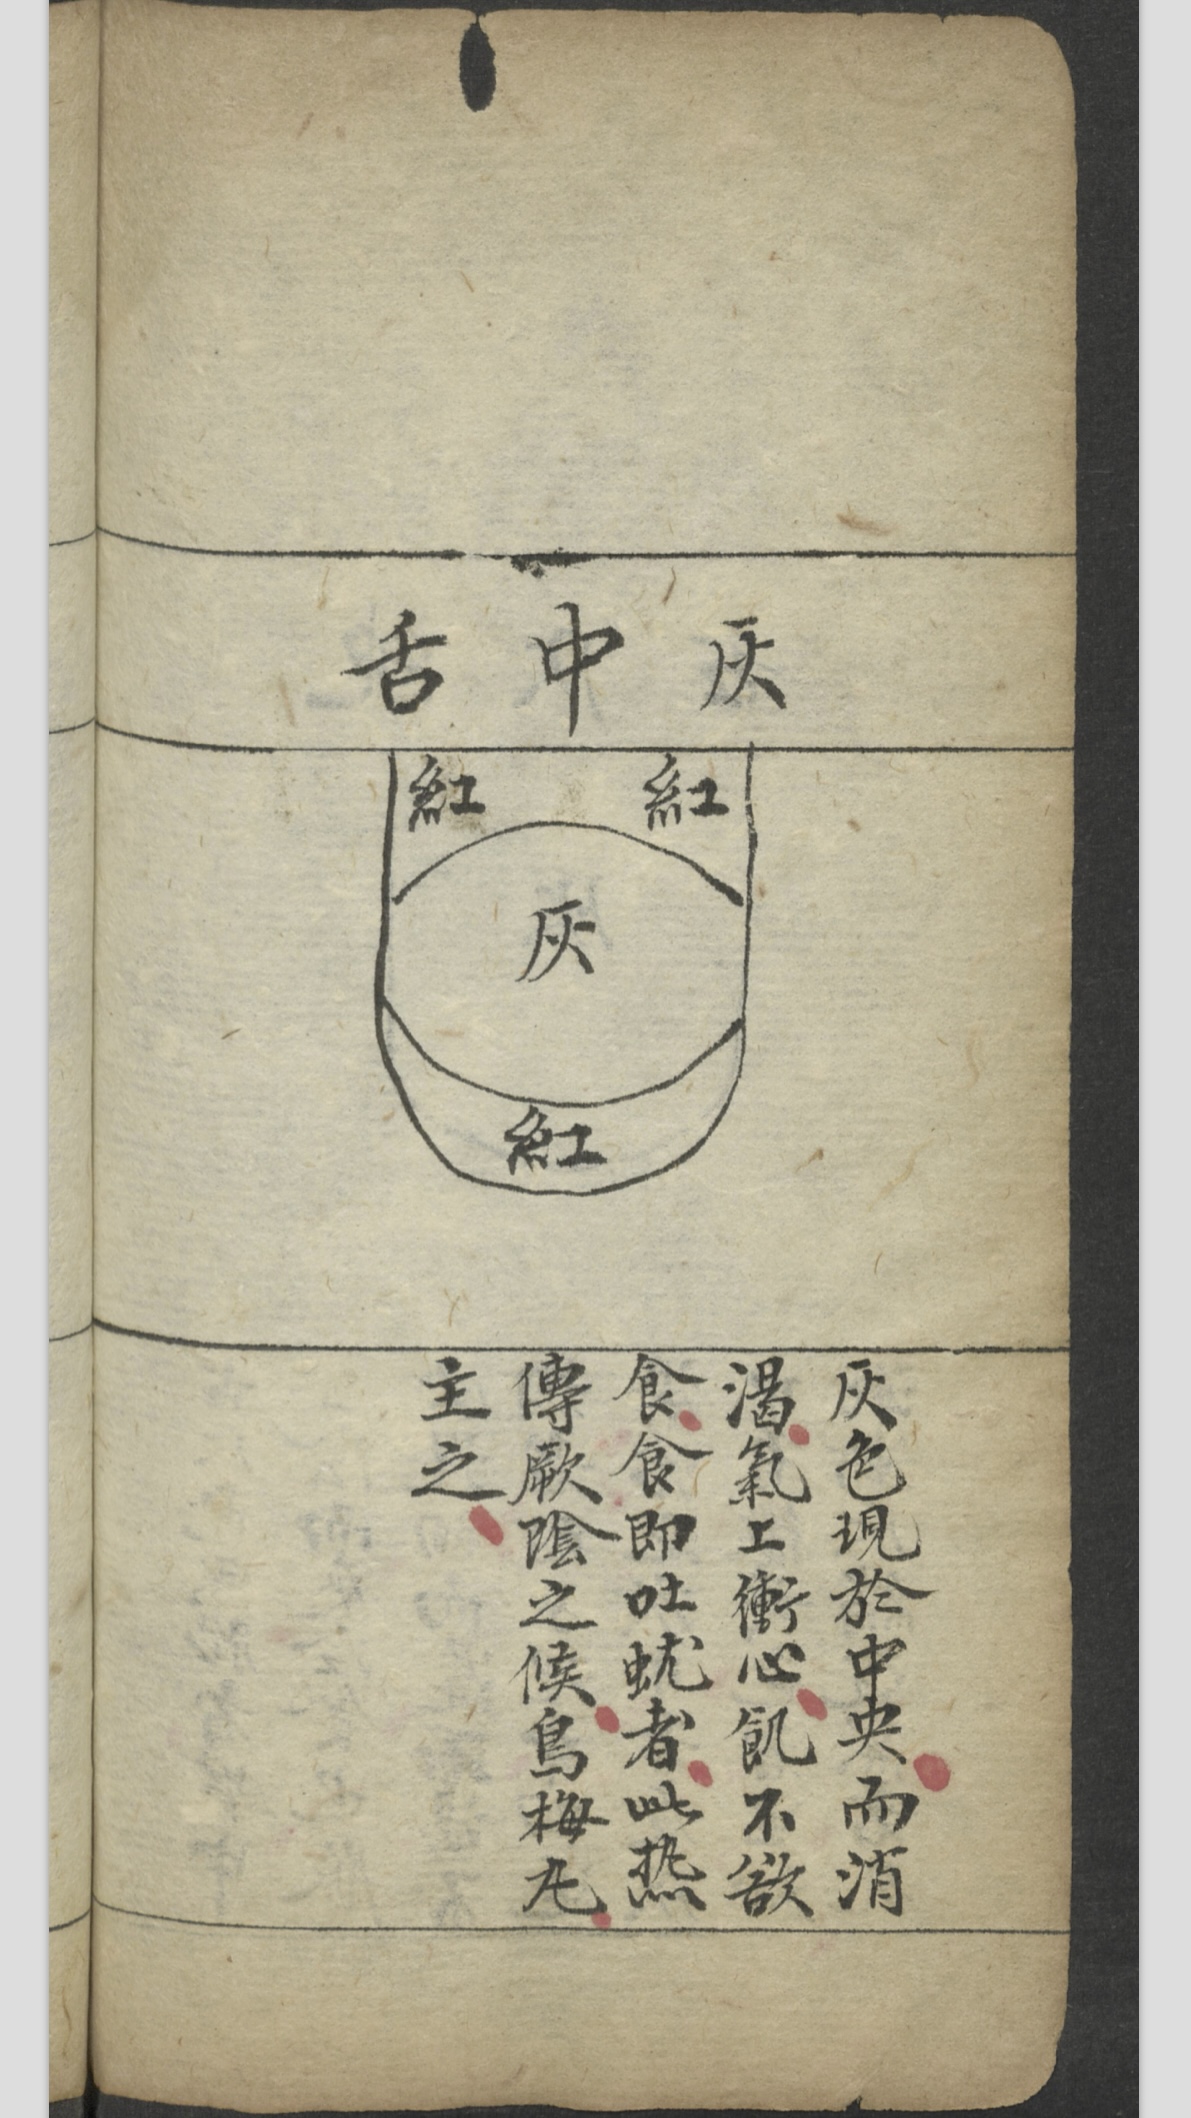 灰中舌
紅 紅
灰
紅
灰色現於中央而消
渴氣上衝心飢不欲
食食即吐蚘者此热
傳厥陰之候烏梅丸
主之